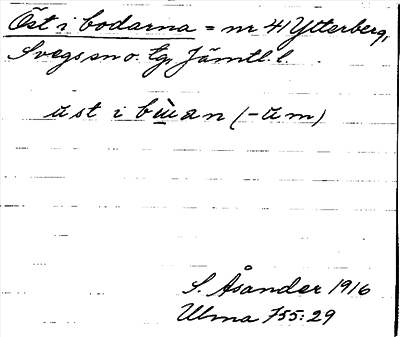 Öst i bodarna = nr 41 Ytterberg,
Svegs sn o. tg, Jämtl. l.
ūst i bùan (-ūm)
S. Åsander 1916
Ulma 755:29